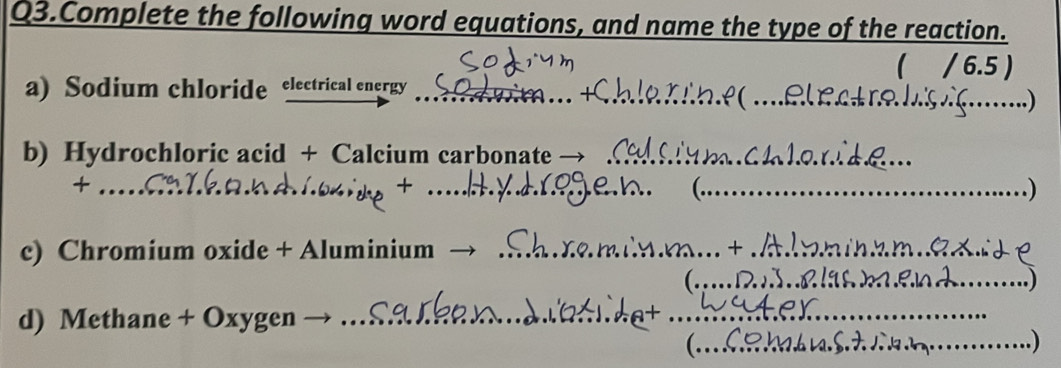 Q3.Complete the following word equations, and name the type of the reaction.
( /6.5)
sodium
a) Sodium chloride electrical energy → ... +Chlorine(....electrolisis........)
b) Hydrochloric acid + Calcium carbonate → .Calcium.Chloride...
+ .....Carbondioxide + .....Hydrogen.. (......................................)
c) Chromium oxide + Aluminium → .Chromium... + .Aluminum..oxide
(.....Displasment..........)
d) Methane + Oxygen → ...carbon..dioxide+ ....water....................
(....Combustion.............)